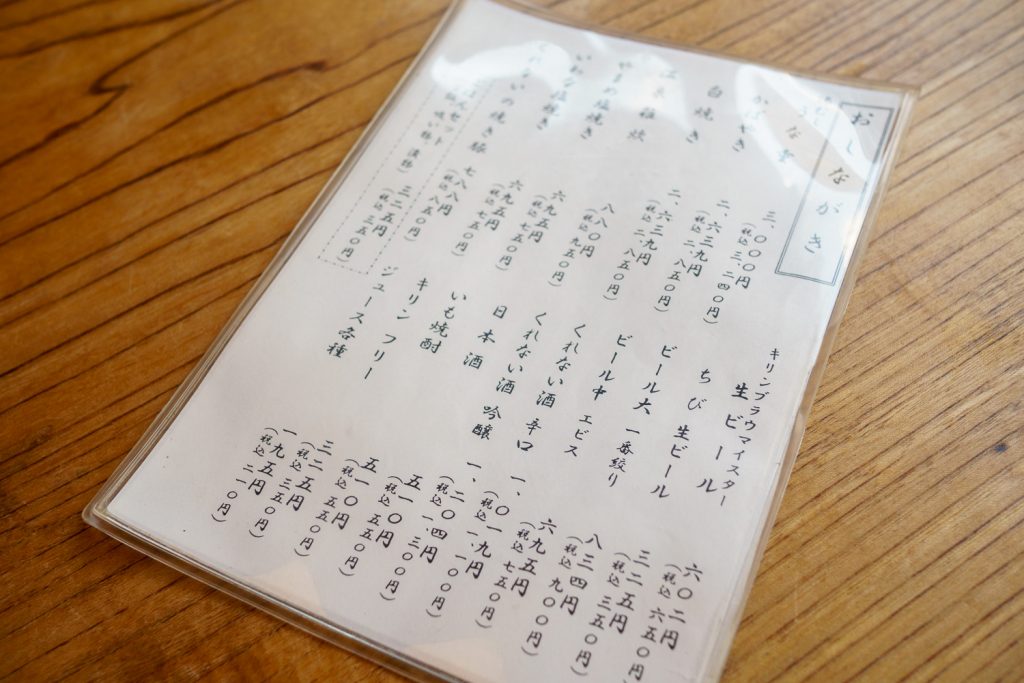 おしながき
うな重
三、〇〇〇円
(税込 三、二四〇円)
かばやき
二、六三九円
(税込 二、八五〇円)
白焼き
二、六三九円
(税込 二、八五〇円)
雑炊
八八〇円
(税込 九五〇円)
やまめ塩焼き
六九五円
(税込 七五〇円)
いわな塩焼き
六九五円
(税込 七五〇円)
くれないの焼き豚
七八八円
(税込 八五〇円)
セット
吸い物 漬物
三二五円
(税込 三五〇円)
キリンブラウマイスター
生ビール
六〇二円
(税込 六五〇円)
ちび生ビール
三二五円
(税込 三五〇円)
ビール大 一番絞り
八三四円
(税込 九〇〇円)
ビール中 エビス
六九五円
(税込 七五〇円)
くれない酒 辛口
一、〇一九円
(税込 一、一〇〇円)
くれない酒 吟醸
一、二〇四円
(税込 一、三〇〇円)
日本酒
五一〇円
(税込 五五〇円)
いも焼酎
五一〇円
(税込 五五〇円)
キリン フリー
三二五円
(税込 三五〇円)
ジュース各種
一九五円
(税込 二一〇円)